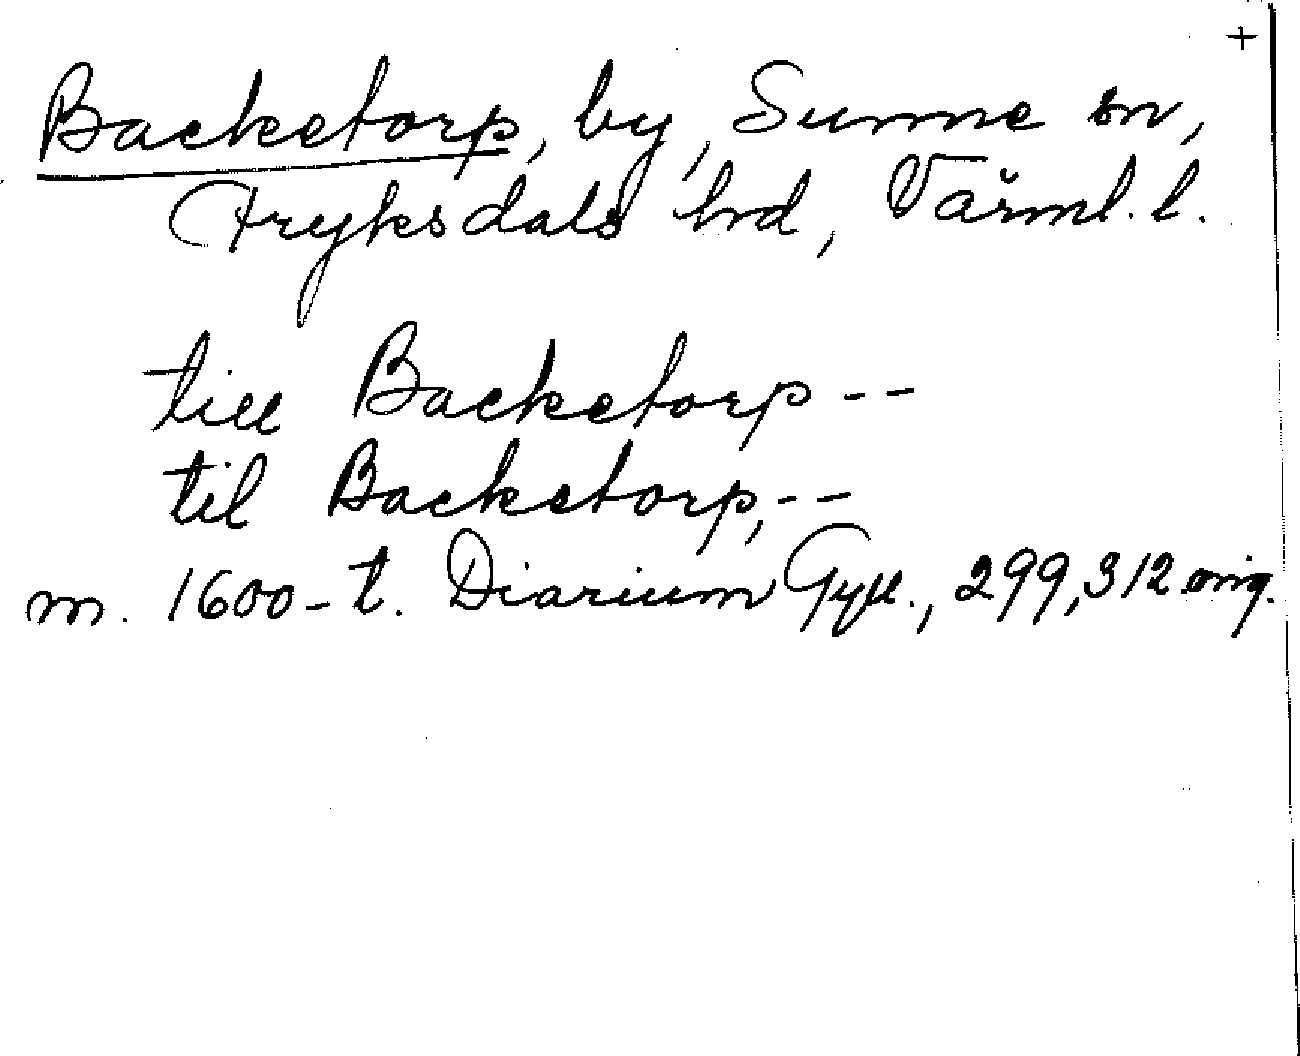 +
Backetorp, by, Sunne sn,
Fryksdals hd, Värml. l.
till Backetorp --
til Backetorp, --
m. 1600-t. Diarium Gyll., 299, 312 orig.